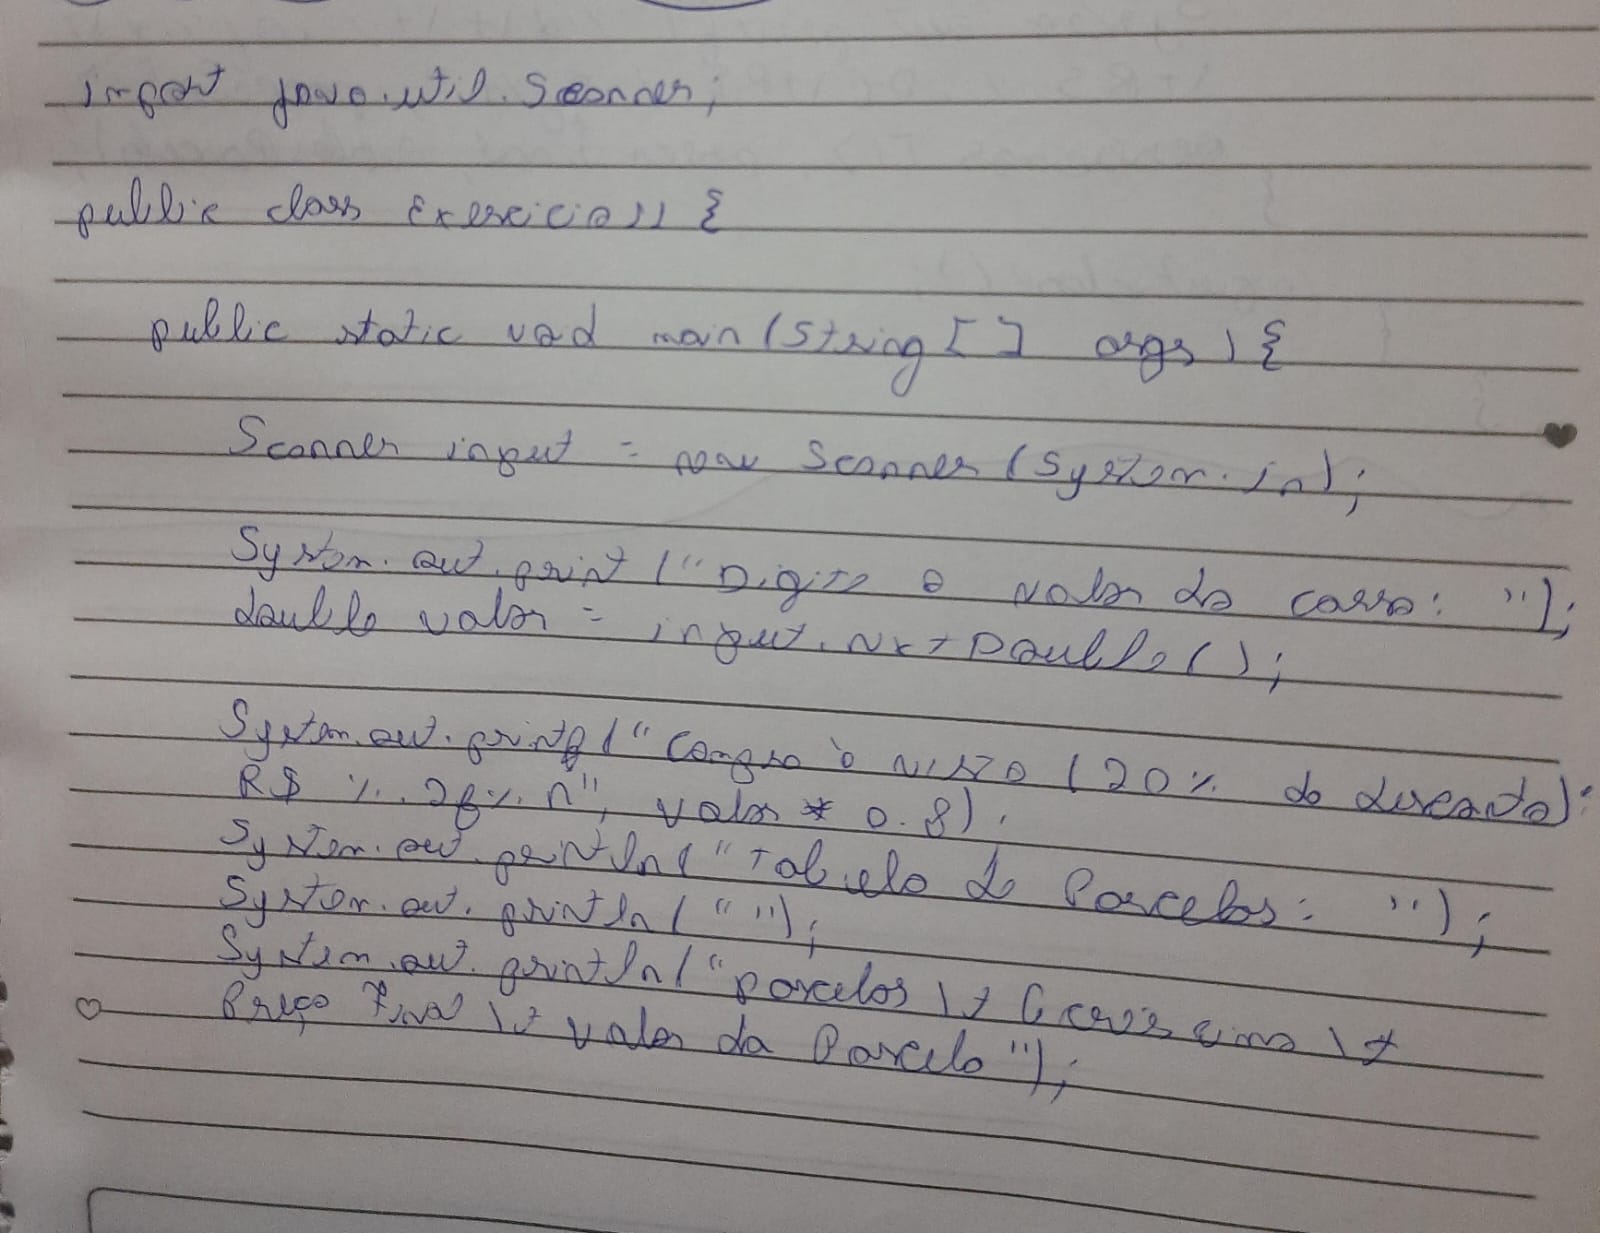 import java.util.Scanner;
public class Exercicio11 {
public static void main (String [] args) {
Scanner input = new Scanner (System.in);
System.out.print ("Digite o valor do carro: ");
double valor = input.NextDouble();
System.out.printf ("Compra à vista (20% de desconto):
R$ %.2f%n", valor * 0.8).
System.out.println ("Tabela de Parcelas: ");
System.out.println (" ");
System.out.println ("parcelas \t Acréscimo \t
Preço Final \t valor da Parcela");